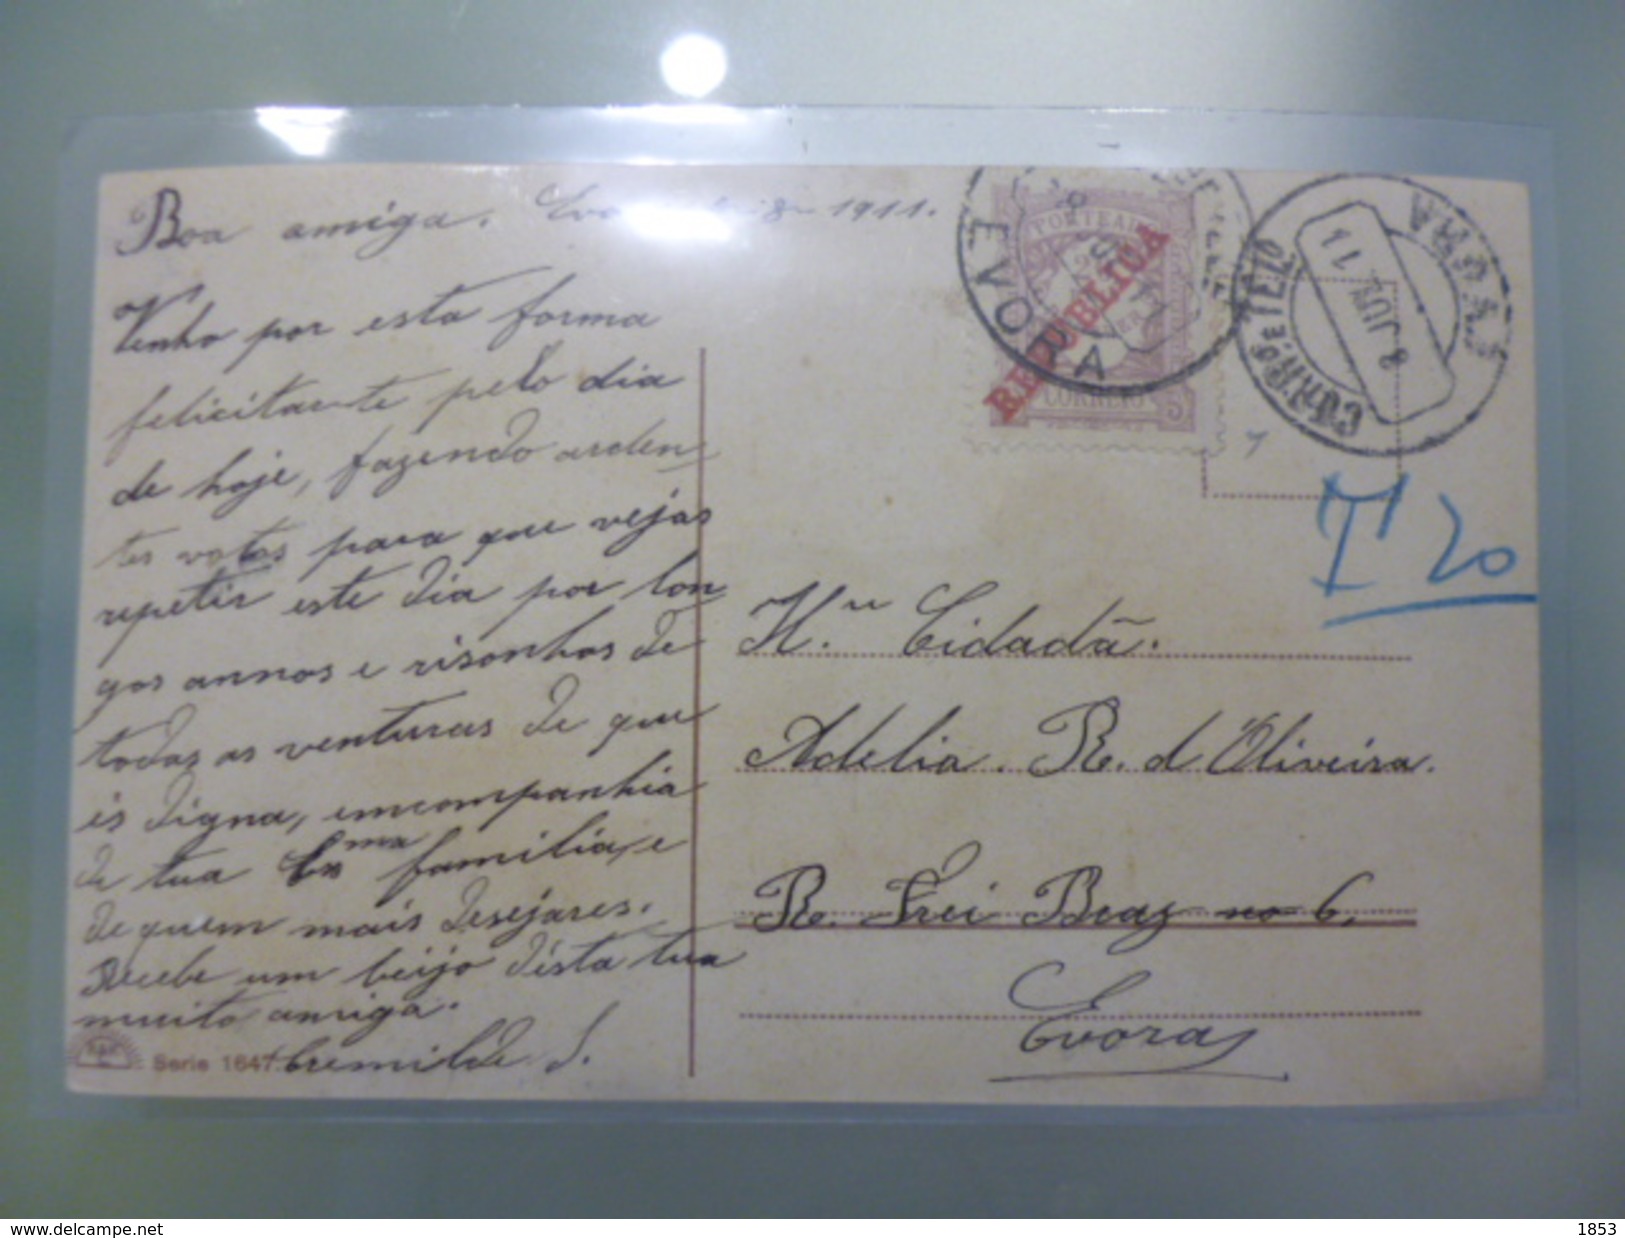 Boa amiga. 8 - 1911.
Venho por esta forma
felicitar-te pelo dia
de hoje, fazendo arden-
tes votos para que vejas
repetir este dia por lon
gos annos e risonhos de
todas as venturas de que
és digna, emcompanhia
de tua Exma familia, e
de quem mais desejares.
Recebe um beijo d'esta tua
muito amiga.
Serie 1647
PORTEADO
REPUBLICA
CORREIO
5
EVORA
EVORA
CORR.OS E TEL.
8 JUL 11
T 20
Cidadã.
Adelia. R. d'Oliveira.
R. Frei Braz no 6.
Evora
www.delcampe.net
Pedrobelem
1853